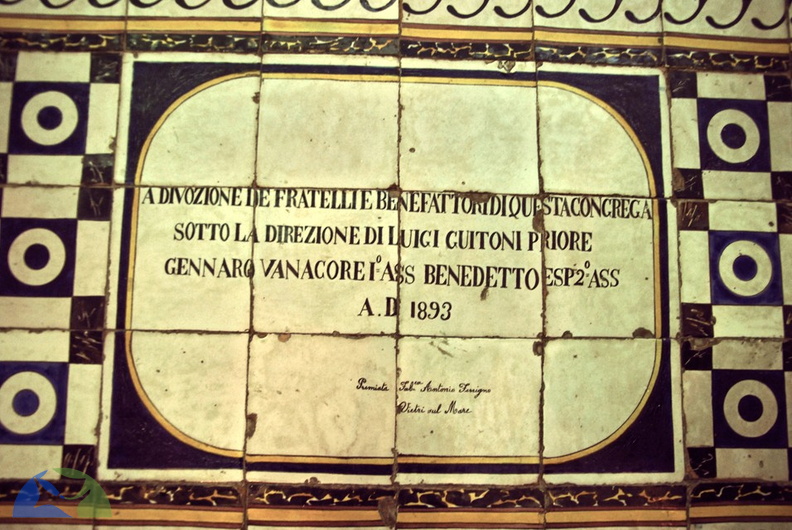 A DIVOZIONE DE FRATELLI E BENEFATTORI DI QUESTA CONGREGA
SOTTO LA DIREZIONE DI LUIGI GUITONI PRIORE
GENNARO VANACORE I° ASS BENEDETTO ESP 2° ASS
A. D 1893
Premiata Fab.ca Antonio Ferrigno
Vietri sul Mare